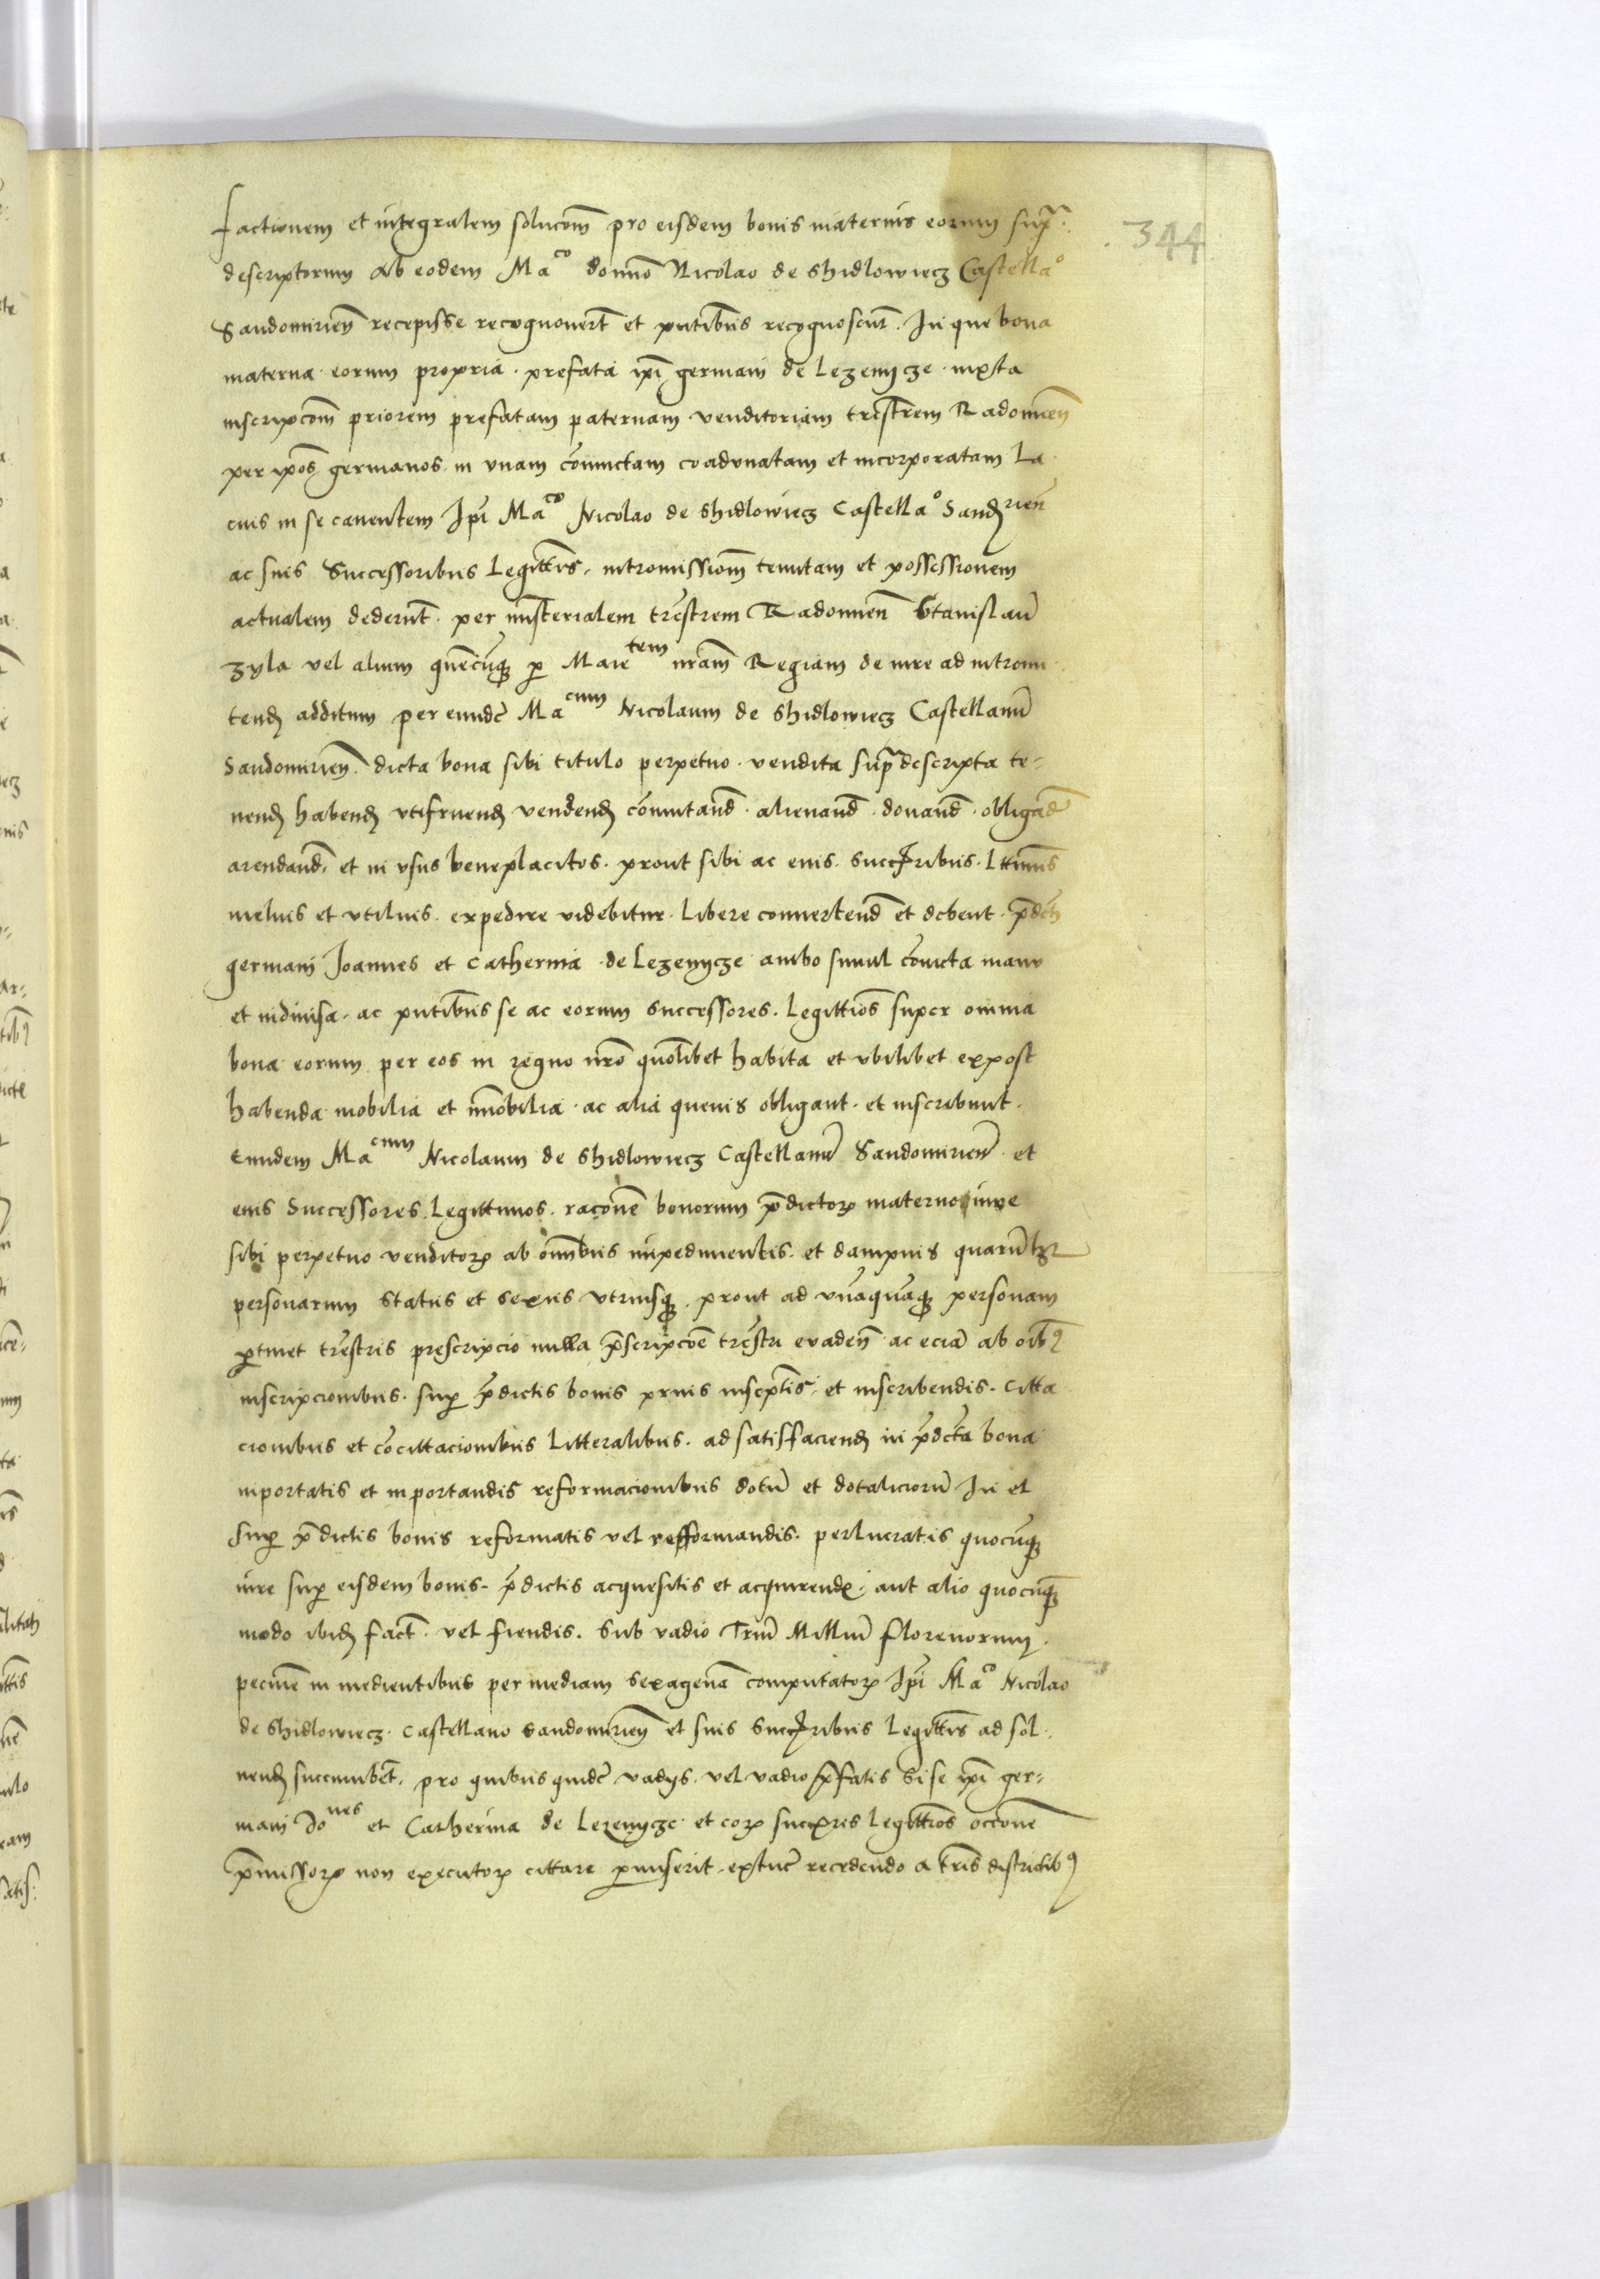 344
factionem et integralem solucom̄ pro eisdem bonis maternis eorum supra
descriptorum ab eodem Ma co domno Nicolao de Shidlowiecz Castella o
Sandomirien̄ recepisse recognouer̄t et pn̄tibus recognoscūt. In que bona
materna eorum propria prefata ip̄i germani de Lezenycze iuxta
inscripcom̄ priorem prefatam paternam venditoriam trēstrem Radomien̄
per ip̄os germanos in vnam cōiunctam coadunatam et incorporatam La
cius in se cauentem Ip̄i Ma co Nicolao de Shidlowiecz Castella o Sand rien̄
ac suis Successoribus Legittīs. intromissiom̄ tenutam et possessionem
actualem dederūt. per mīsterialem trēstrem Radomien̄ Stanislaū
Zyla vel alium quēcūq per Maie tem nr̄am Regiam de iure ad intromi
tend additum per eundē Ma cum Nicolaum de Shidlowiecz Castellanū
Sandomirien̄. dicta bona sibi titulo perpetuo vendita supradescripta te=
nend habend vtifruend vendend cōmutand̄ alienand̄ donand̄ obligād
arendand̄. et in vsus beneplacitos. prout sibi ac eius succ̄ribus. Lttimis
melius et vtilius expedire videbitur Libere conuertend̄ et debent p̄dcti
germani Joannes et Catherina de Lezenycze ambo simul cōiūcta manu
et indiuisa. ac pn̄tibus se ac eorum successores. Legittīos super omnia
bona eorum per eos in regno nr̄o quolibet habita et vbilibet expost
habenda mobilia et īmobilia ac alia queuis obligant. et inscribunt.
Eundem Ma cum Nicolaum de Shidlowiecz Castellanū Sandomirien̄ et
eius Successores Legittimos. racōne bonorum p̄dictor materno iure
sibi perpetuo venditor ab om̄ibus impedimentis. et dampnis quarūlt
personarum status et sexus vtriusq. prout ad vnāquāq personam
pertinet trēstris prescripcio nulla p̄scripcōe trēstri euaden̄ ac eciā ab oībus
inscripcionibus. super p̄dictis bonis prius inscp̄tis et inscribendis. citta
cionibus et cōcittacionibus Litteralibus. ad satisfaciend in p̄dcta bona
inportatis et inportandis reformacionibus dotū et dotaliciorū In et
super p̄dictis bonis reformatis vel refformandis. perlucratis quocūq
iure super eisdem bonis. p̄dictis acquesitis et acquirend. aut alio quocūq
modo ibid fact̄. vel fiendis. Sub vadio Triū Milliū florenorum.
pecunie in medientibus per mediam sexagenā computator Ip̄i Ma co Nicolao
de Shidlowiecz Castellano Sandomirien̄ et suis succ̄ribus Legittīs ad sol
uend succumbēt. pro quibus quidē vadys. vel vadio p̄fatis Si se ip̄i ger=
mani Jo nes et Catherina de Lezenycze et eor succ̄res Legittīos occōne
p̄missor non executor cittare permiserit. extūc recedendo a tr̄is districtibus